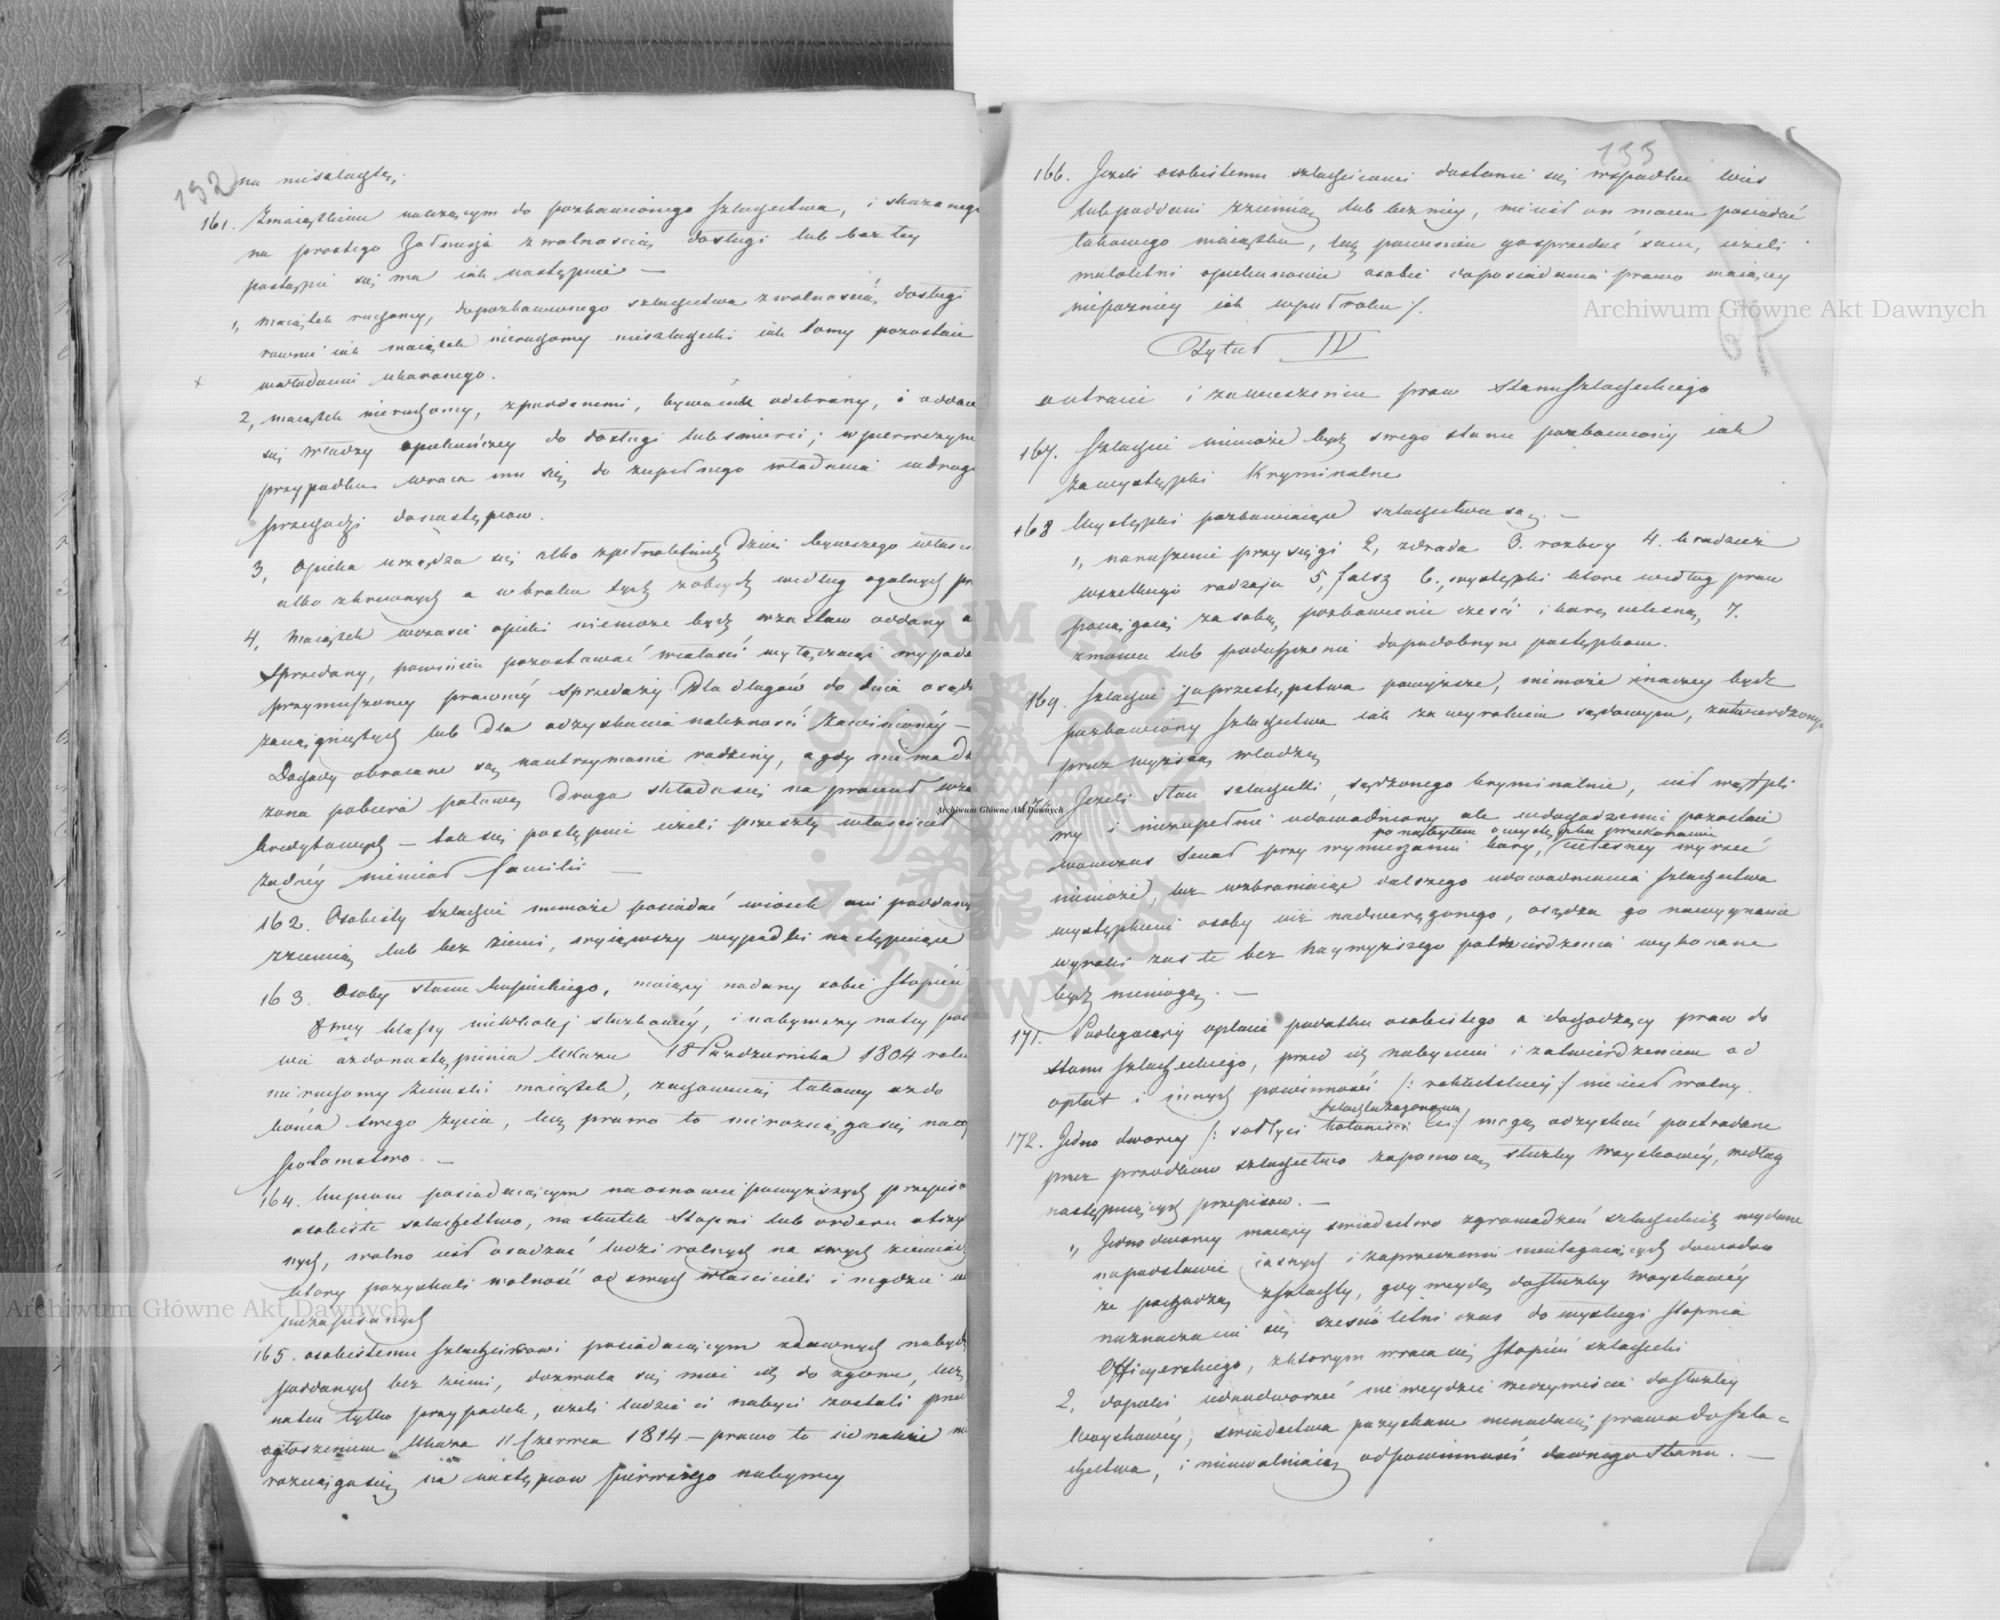 192
na nieszlachtę,
161. Zmaiątkiem należącym do pozbawionego szlachectwa, i skazanego
na prostego Żołnierza z wolnością dosługi lub bez tey
postąpić się ma iak następuie —
1, Maiątek ruchomy, dopozbawionego szlachectwa z wolnością dosługi
rownie iak maiątek nieruchomy nieszlachecki iak domy pozostaie
wewładaniu ukaranego.
2, maiątek nieruchomy, zpoddanemi, bywa odebrany, i oddaie
się władzy opiekuńczey do dosługi lub śmierci; w pierwszym
przypadku wraca mu się do zupełnego władania wdrugim
przechodzi donastępcow.
3, Opieka urządza się albo zpełnoletnich dzieci bywszego właści
albo zkrewnych a w braku tych z obcych według ogolnych pr
4, Maiątek wczasie opieki niemoże bydź wzastaw oddany a
Sprzedany, powinien pozostawać wcałości wyłączaiąc wypadek
przymuszoney prawnéy sprzedaży dla długów do dnia osądz
zaciągniętych lub dla odzyskania należności —
Dochody obracane są nautrzymanie rodziny, a gdy niema dzieci
żona pobiera połowę druga składa się na procent
kredytowych — tak się postępuie ieżeli przeszły właściciel
żadnéy niemiał familii —
162. Osobisty szlachcic niemoże posiadać wiosek ani poddanych
zziemią lub bez ziemi, wyiąwszy wypadki następuiące
163. Osoby stanu kupieckiego, maiący nadany sobie stopień
8mey klassy niewkolej służbowéy, i nabywszy natey pod
wie aż donastąpienia Ukazu 18 Pazdziernika 1804 roku
nieruchomy ziemski maiątek, zachowuią takowy aż do
końca swego życia, lecz prawo to nierozciąga się na
potomstwo. —
164. Kupcom posiadaiącym naosnowie powyższych przepisow
osobiste szlachectwo, na skutek stopni lub orderu otrzyma
nych, wolno iest osadzać ludzi wolnych na swych ziemiach
ktorzy pozyskali wolność od swych właścicieli i nigdzie nie
są zapisanych
165. osobistemu szlachcicowi posiadaiącym zdawnych nabyć
poddanych bez ziemi, dozwala się mieć ich do zgonu, lecz
naten tylko przypadek, ieżeli ludzie ci nabyci zostali przed
ogłoszeniem Ukazu 11 Czerwca 1814 — prawo to iednakże nie
rozciąga się na następcow pierwszego nabywcy
193
166. Jeżeli osobistemu szlachcicowi dostanie się wspadku wieś
lub poddani zziemią lub bez niey, nieiest on mocen posiadać
takowego maiątku, lecz powinien go sprzedać sam, ieżeli
małoletni opiekunowie osobie doposiadania prawo maiącey
niepozniey iak w puł roku /.
Tytuł IV
outracie i zawieszeniu praw Stanu Szlacheckiego
167. Szlachcic niemoże bydz swego stanu pozbawiony iak
zawystępki Kryminalne
168 Występki pozbawiaiące szlachectwa są. —
1, naruszenie przysięgi 2, zdrada 3. rozboy 4. kradzież
wszelkiego rodzaju 5, fałsz 6., występki ktore według praw
pociągaią za sobą pozbawienie cześci i karę cielesną, 7.
zmowa lub poduszczenie dopodobnym postępkom.
169. Szlachcic zaprzestępstwa powyższe, niemoże inaczey bydz
pozbawiony szlachectwa iak za wyrokiem sądowym, zatwierdzonym
przez wyższą władzę
170. Jeżeli stan szlachecki, sądzonego kryminalnie, iest wątpli
wy i niezupełnie udowodniony ale wdochodzeniu pozostaie
po nabytem o występku przekonaniu
wowczas Senat przy wymierzaniu kary, cielesney wyrzec
niemoże, lecz wzbraniaiąc dalszego udowadniania szlachectwa
występkiem osoby iuż nadwerężonego, osądza go nawygnanie
wyroki zaś te bez Naywyższego potwierdzenia wykonane
bydź niemogą. —
171. Podlegaiący opłacie podatku osobistego a dochodzący praw do
stanu szlacheckiego, przed ich nabyciem i zatwierdzeniem od
opłat i innych powinności /: rekrutskiey :/ nieiest wolny.
szlachta zagonowa
172. Jedno dworcy /: sołtysi :/ mogą odzyskać postradane
przez przodkow szlachectwo zapomocą służby woyskowéy, według
następuiących przepisow. —
1, Jednodworcy maiący swiadectwo zgromadzeń szlacheckich wydane
napodstawie iasnych i zaprzeczeniu nieulegaiących dowodow
że pochodzą zszlachty, gdy weydą dosłużby woyskowéy
naznacza im się sześcioletni czas do wysługi stopnia
Officyerskiego, zktorym wraca się stopień szlachecki
2, dopoki iednodworzec nie weydzie rzeczywiscie dosłużby
Woyskowéy, świadectwa pozyskane nienadaią prawa do szla=
chectwa, i nieuwalniaią odpowinności dawnego Stanu. —
Archiwum Główne Akt Dawnych
Archiwum Główne Akt Dawnych
Archiwum Główne Akt Dawnych
ARCHIWUM GŁÓWNE AKT DAWNYCH